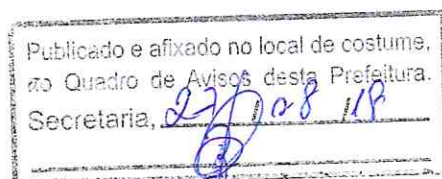 Publicado e afixado no local de costume,
no Quadro de Avisos desta Prefeitura.
Secretaria, 27/08/18